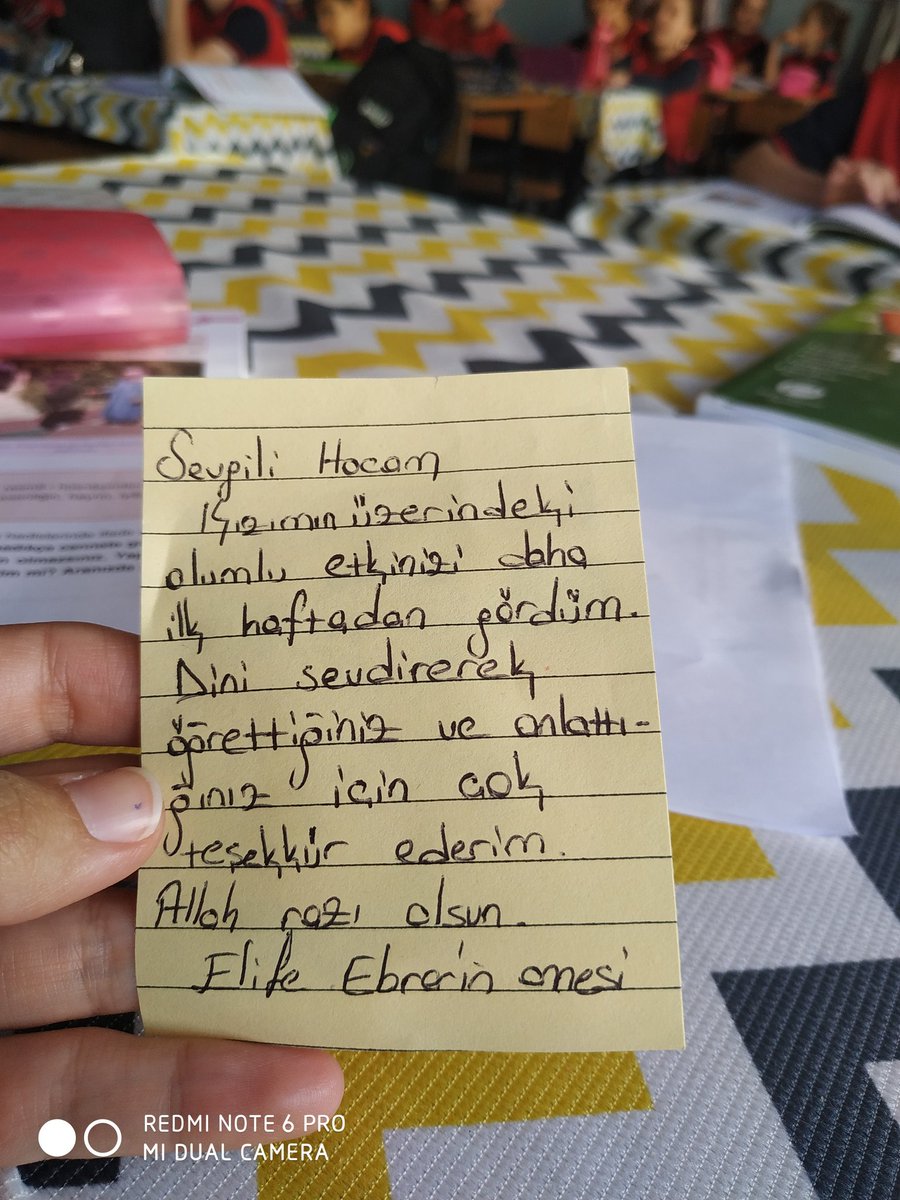 Sevgili Hocam
Kızımın üzerindeki
olumlu etkinizi daha
ilk haftadan gördüm.
Dini sevdirerek
öğrettiğiniz ve anlattı-
ğınız için çok
teşekkür ederim.
Allah razı olsun.
Elife Ebrar'in annesi
REDMI NOTE 6 PRO
MI DUAL CAMERA